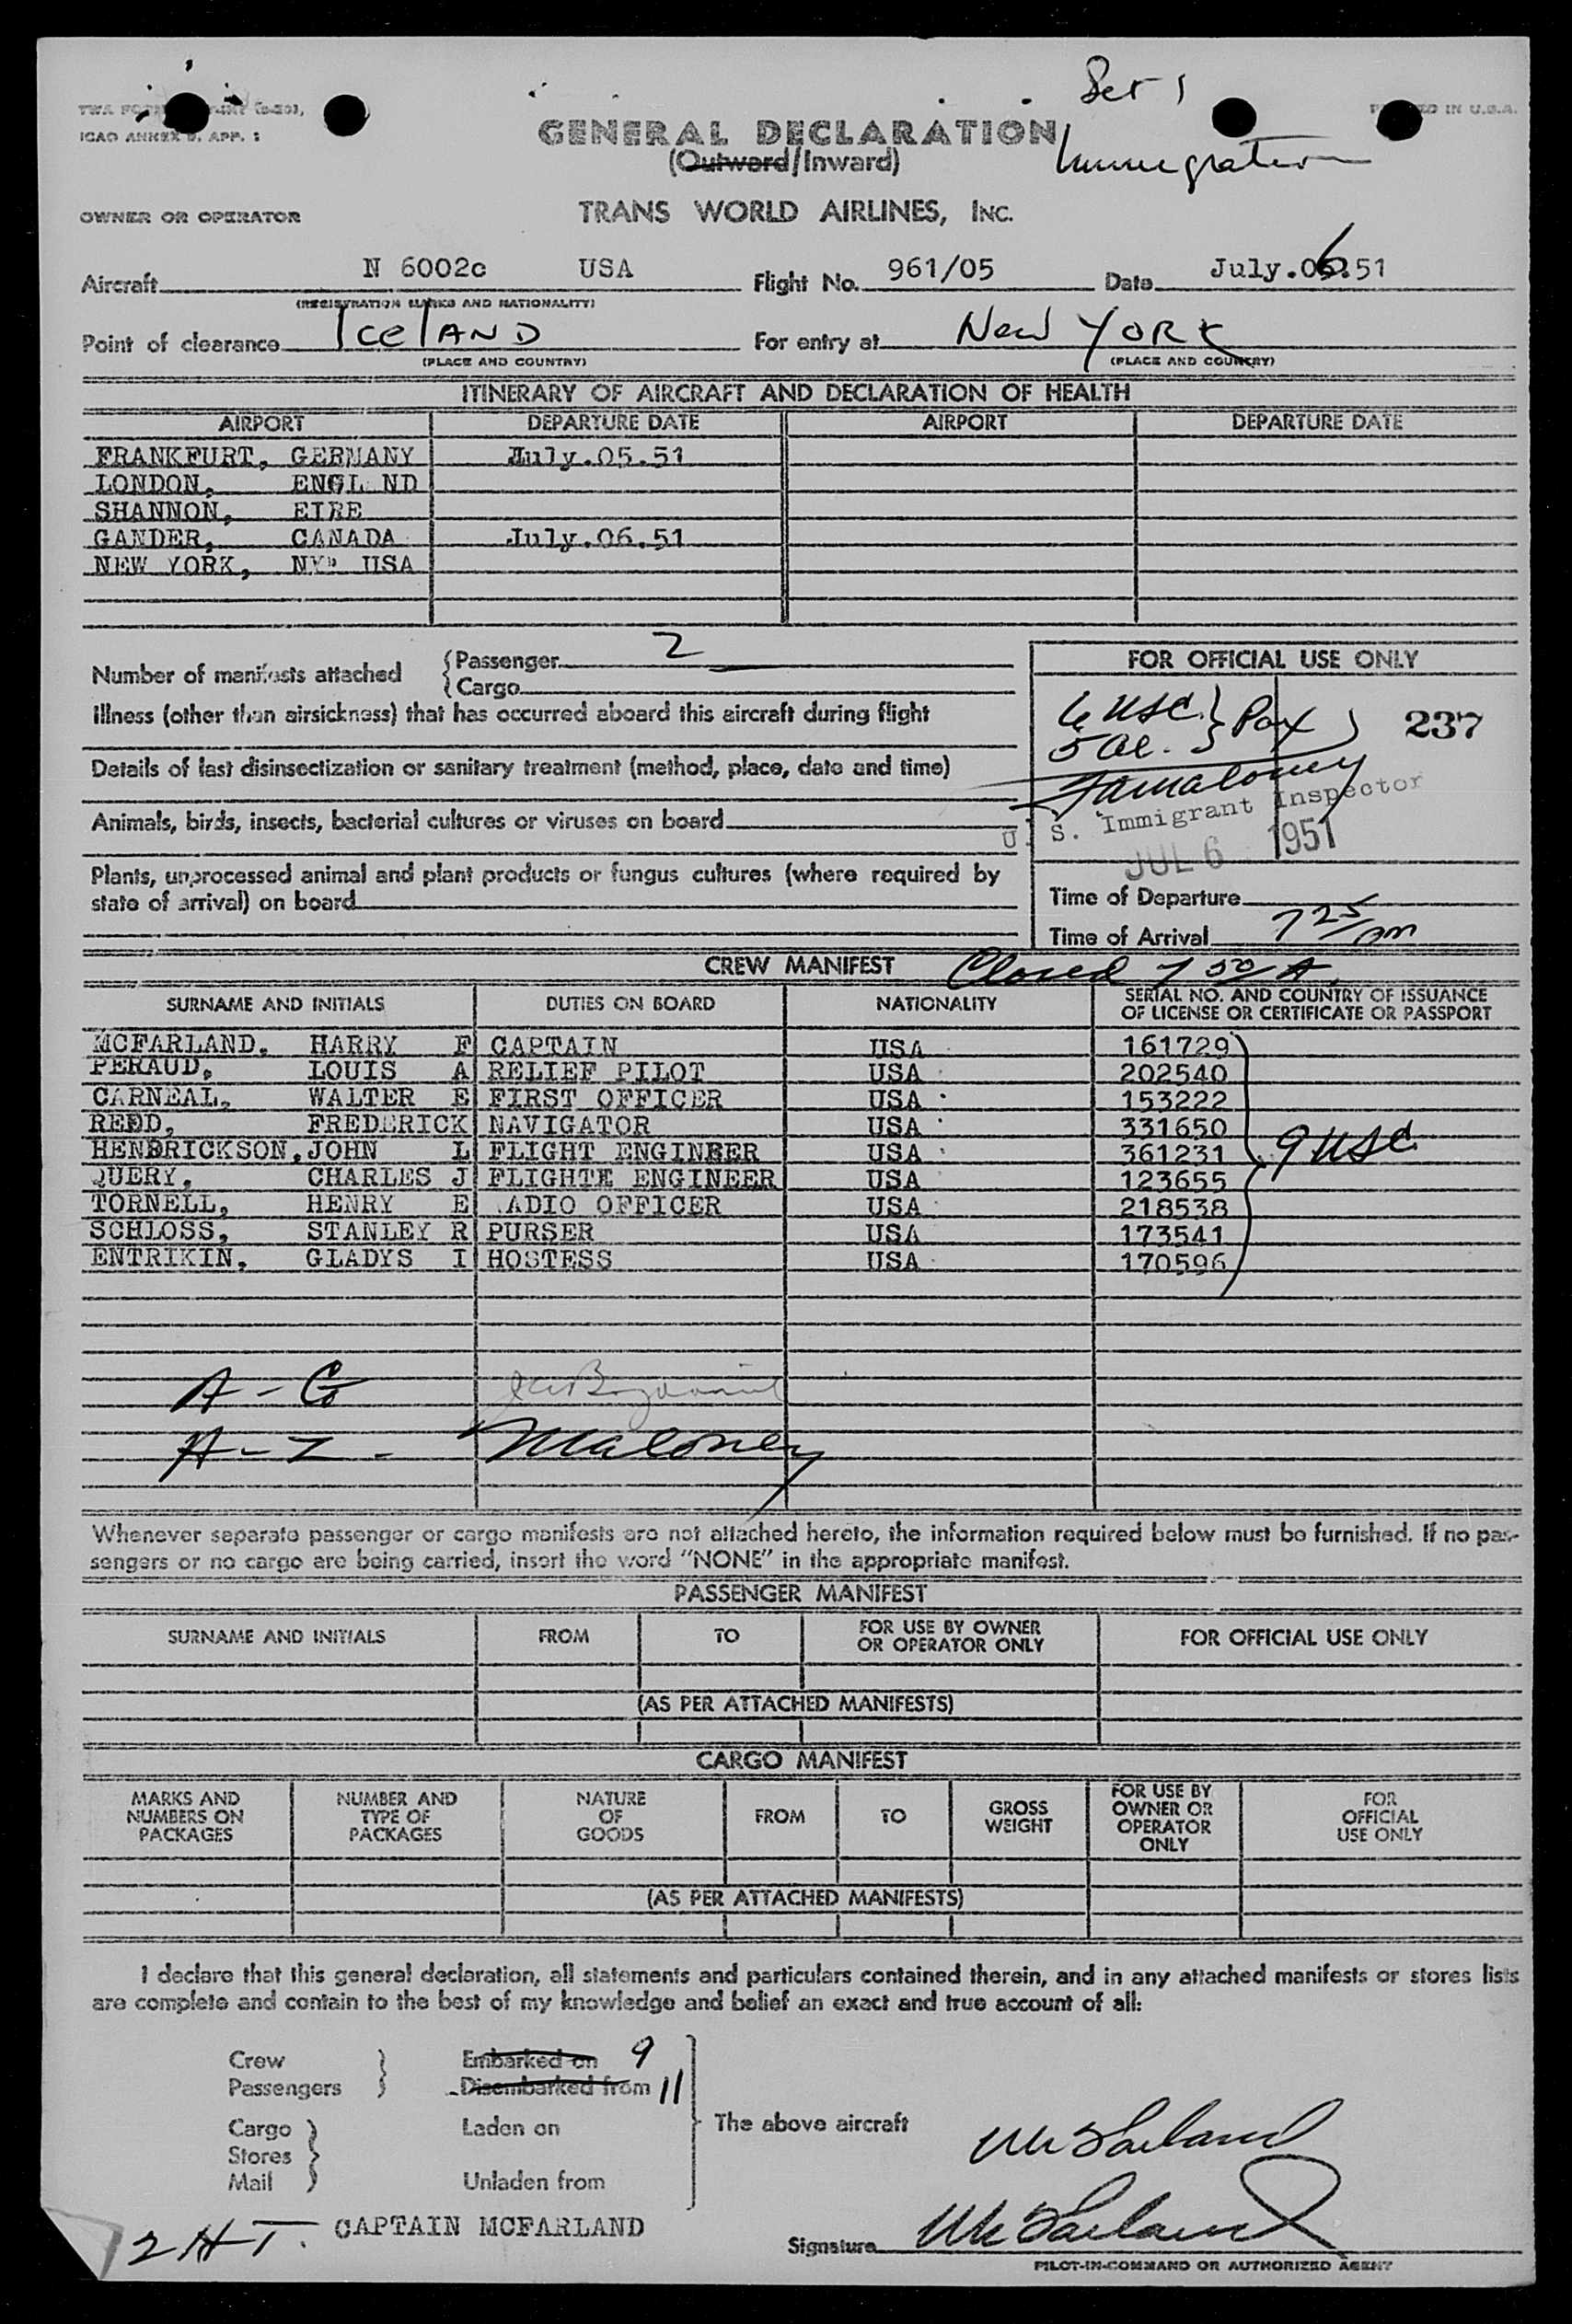 Set 1
Immigration
TWA FORM
ICAO ANNEX 9, APP. 1
PRINTED IN U.S.A.
GENERAL DECLARATION
(Outward/Inward)
OWNER OR OPERATOR TRANS WORLD AIRLINES, INC.
Aircraft N 6002c USA Flight No. 961/05 Date July.06.51
(REGISTRATION MARKS AND NATIONALITY)
Point of clearance Iceland For entry at New York
(PLACE AND COUNTRY) (PLACE AND COUNTRY)
ITINERARY OF AIRCRAFT AND DECLARATION OF HEALTH
AIRPORT DEPARTURE DATE AIRPORT DEPARTURE DATE
FRANKFURT, GERMANY July.05.51
LONDON, ENGL ND
SHANNON, EIRE
GANDER, CANADA July.06.51
NEW YORK, NY USA
Number of manifests attached Passenger 2
Cargo
Illness (other than airsickness) that has occurred aboard this aircraft during flight
Details of last disinsectization or sanitary treatment (method, place, date and time)
Animals, birds, insects, bacterial cultures or viruses on board
Plants, unprocessed animal and plant products or fungus cultures (where required by
state of arrival) on board
FOR OFFICIAL USE ONLY
6 USC. } Pax 237
5 al.
Maloney
U. S. Immigrant Inspector
JUL 6 1951
Time of Departure
Time of Arrival 7 25 am
CREW MANIFEST Closed 7 50 A.
SURNAME AND INITIALS DUTIES ON BOARD NATIONALITY SERIAL NO. AND COUNTRY OF ISSUANCE
OF LICENSE OR CERTIFICATE OR PASSPORT
MCFARLAND, HARRY F CAPTAIN USA 161729
PERAUD, LOUIS A RELIEF PILOT USA 202540
CARNEAL, WALTER E FIRST OFFICER USA 153222
REED, FREDERICK NAVIGATOR USA 331650
HENDRICKSON, JOHN L FLIGHT ENGINEER USA 361231 9 USC
QUERY, CHARLES J FLIGHTE ENGINEER USA 123655
TORNELL, HENRY E ADIO OFFICER USA 218538
SCHLOSS, STANLEY R PURSER USA 173541
ENTRIKIN, GLADYS I HOSTESS USA 170596
A - G
A - Z - Maloney
Whenever separate passenger or cargo manifests are not attached hereto, the information required below must be furnished. If no pas-
sengers or no cargo are being carried, insert the word "NONE" in the appropriate manifest.
PASSENGER MANIFEST
SURNAME AND INITIALS FROM TO FOR USE BY OWNER OR OPERATOR ONLY FOR OFFICIAL USE ONLY
(AS PER ATTACHED MANIFESTS)
CARGO MANIFEST
MARKS AND NUMBERS ON PACKAGES NUMBER AND TYPE OF PACKAGES NATURE OF GOODS FROM TO GROSS WEIGHT FOR USE BY OWNER OR OPERATOR ONLY FOR OFFICIAL USE ONLY
(AS PER ATTACHED MANIFESTS)
I declare that this general declaration, all statements and particulars contained therein, and in any attached manifests or stores lists
are complete and contain to the best of my knowledge and belief an exact and true account of all:
Crew Embarked on 9
Passengers Disembarked from 11
Cargo Laden on The above aircraft McFarland
Stores
Mail Unladen from
2 HT. CAPTAIN MCFARLAND
Signature McFarland
PILOT-IN-COMMAND OR AUTHORIZED AGENT